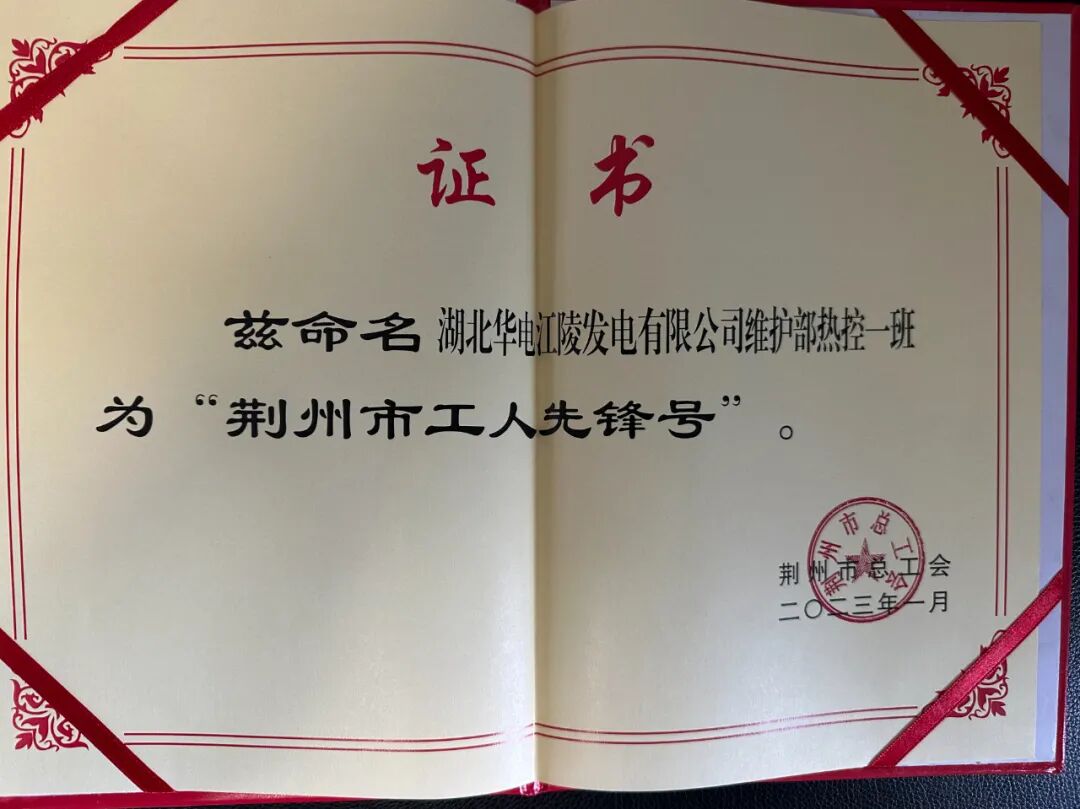 证 书
兹命名 湖北华电江陵发电有限公司维护部热控一班
为“荆州市工人先锋号”。
荆州市总工会
荆州市总工会
二〇二三年一月